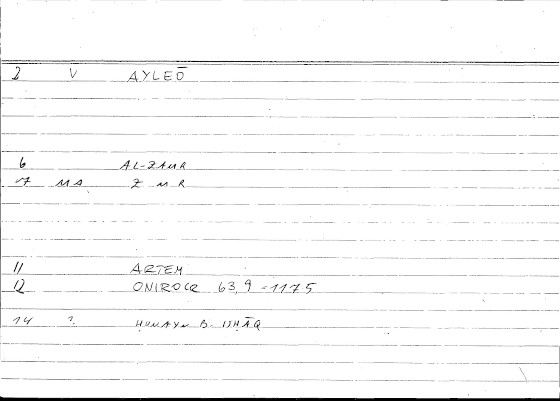 2 V AYLEŌ
6 AL-ZAMR
7 MA Z M R
11 ARTEM
12 ONIROCR 63,9 -1175
14 ?. ḤUNAYN B. ISḤĀQ